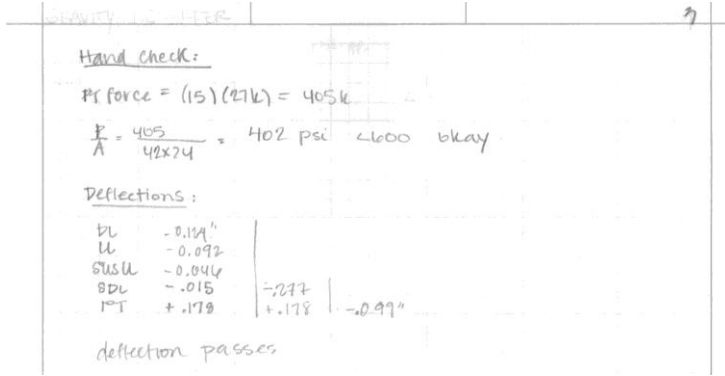 7
Hand check:
PT force = (15)(27k) = 405k
P/A = 405/42x24 = 402 psi <600 okay
Deflections:
DL -0.124"
LL -0.092
SUSLL -0.046
SDL -.015 -.277
PT +.178 +.178 -.099"
deflection passes